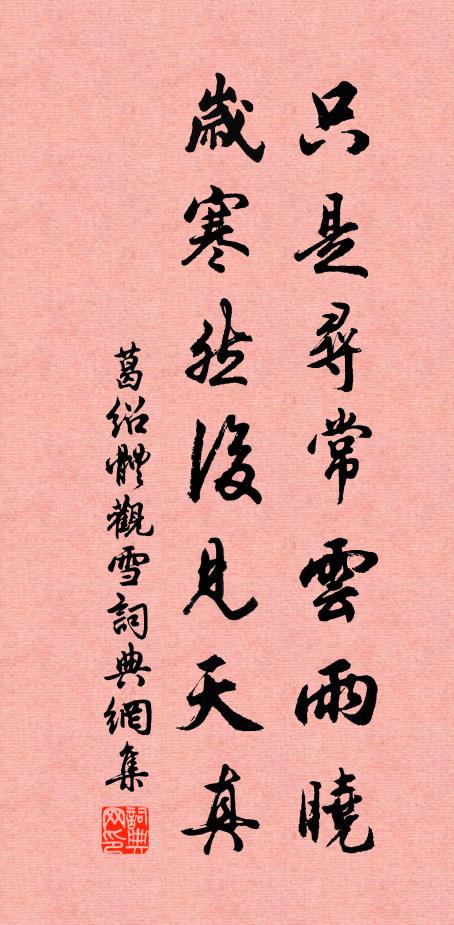 只是尋常雲雨曉
歲寒然後見天真
葛紹體觀雪詞典網集
詞典網印